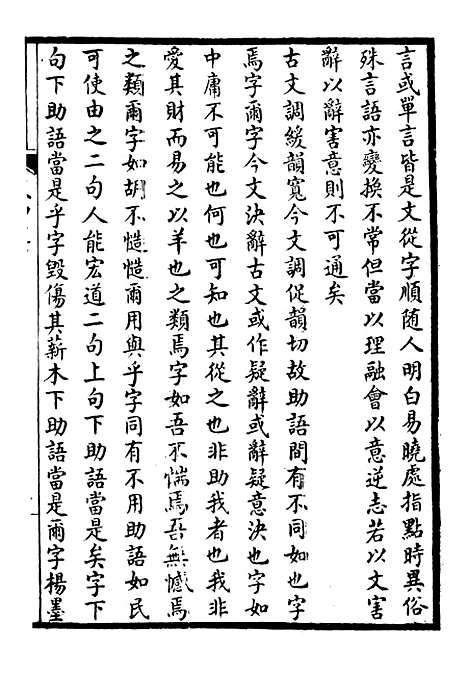 言或單言皆是文從字順随人明白易曉處指點時異俗
殊言語亦變換不常但當以理融會以意逆志若以文害
辭以辭害意則不可通矣
古文調緩韻寬今文調促韻切故助語間有不同如也字
焉字爾字今文決辭古文或作疑辭或辭疑意決也字如
中庸不可能也何也可知也其從之也非助我者也我非
愛其財而易之以羊也之類焉字如吾不惴焉吾無憾焉
之類爾字如胡不慥慥爾用與乎字同有不用助語如民
可使由之二句人能宏道二句上句下助語當是矣字下
句下助語當是乎字毀傷其薪木下助語當是爾字楊墨